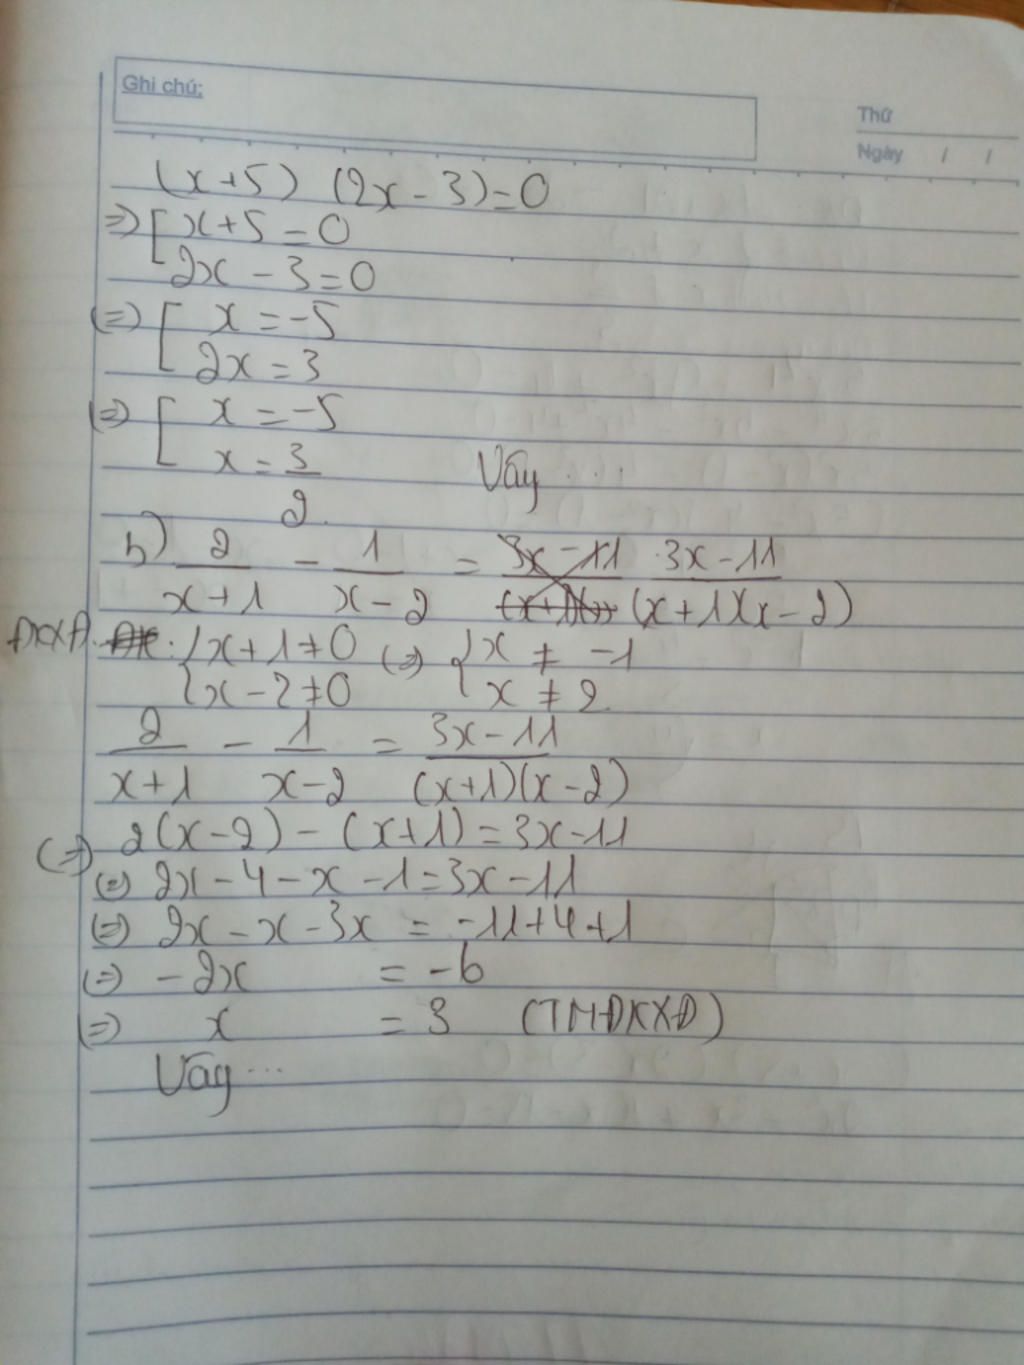 Ghi chú:
Thứ
Ngày / /
(x+5) (2x-3)=0
=> [ x+5=0
2x-3=0
(=) [ x=-5
2x=3
(=) [ x=-5
x=3/2 Vậy ...
b) 2/(x+1) - 1/(x-2) = 3x-11 3x-11/(x+1)(x-2)
ĐKXĐ: { x+1≠0 (=) { x ≠ -1
x-2≠0 x ≠ 2
2/(x+1) - 1/(x-2) = 3x-11/(x+1)(x-2)
(=) 2(x-2)-(x+1)=3x-11
(=) 2x-4-x-1=3x-11
(=) 2x-x-3x = -11+4+1
(=) -2x = -6
(=) x = 3 (TMĐKXĐ)
Vậy ...